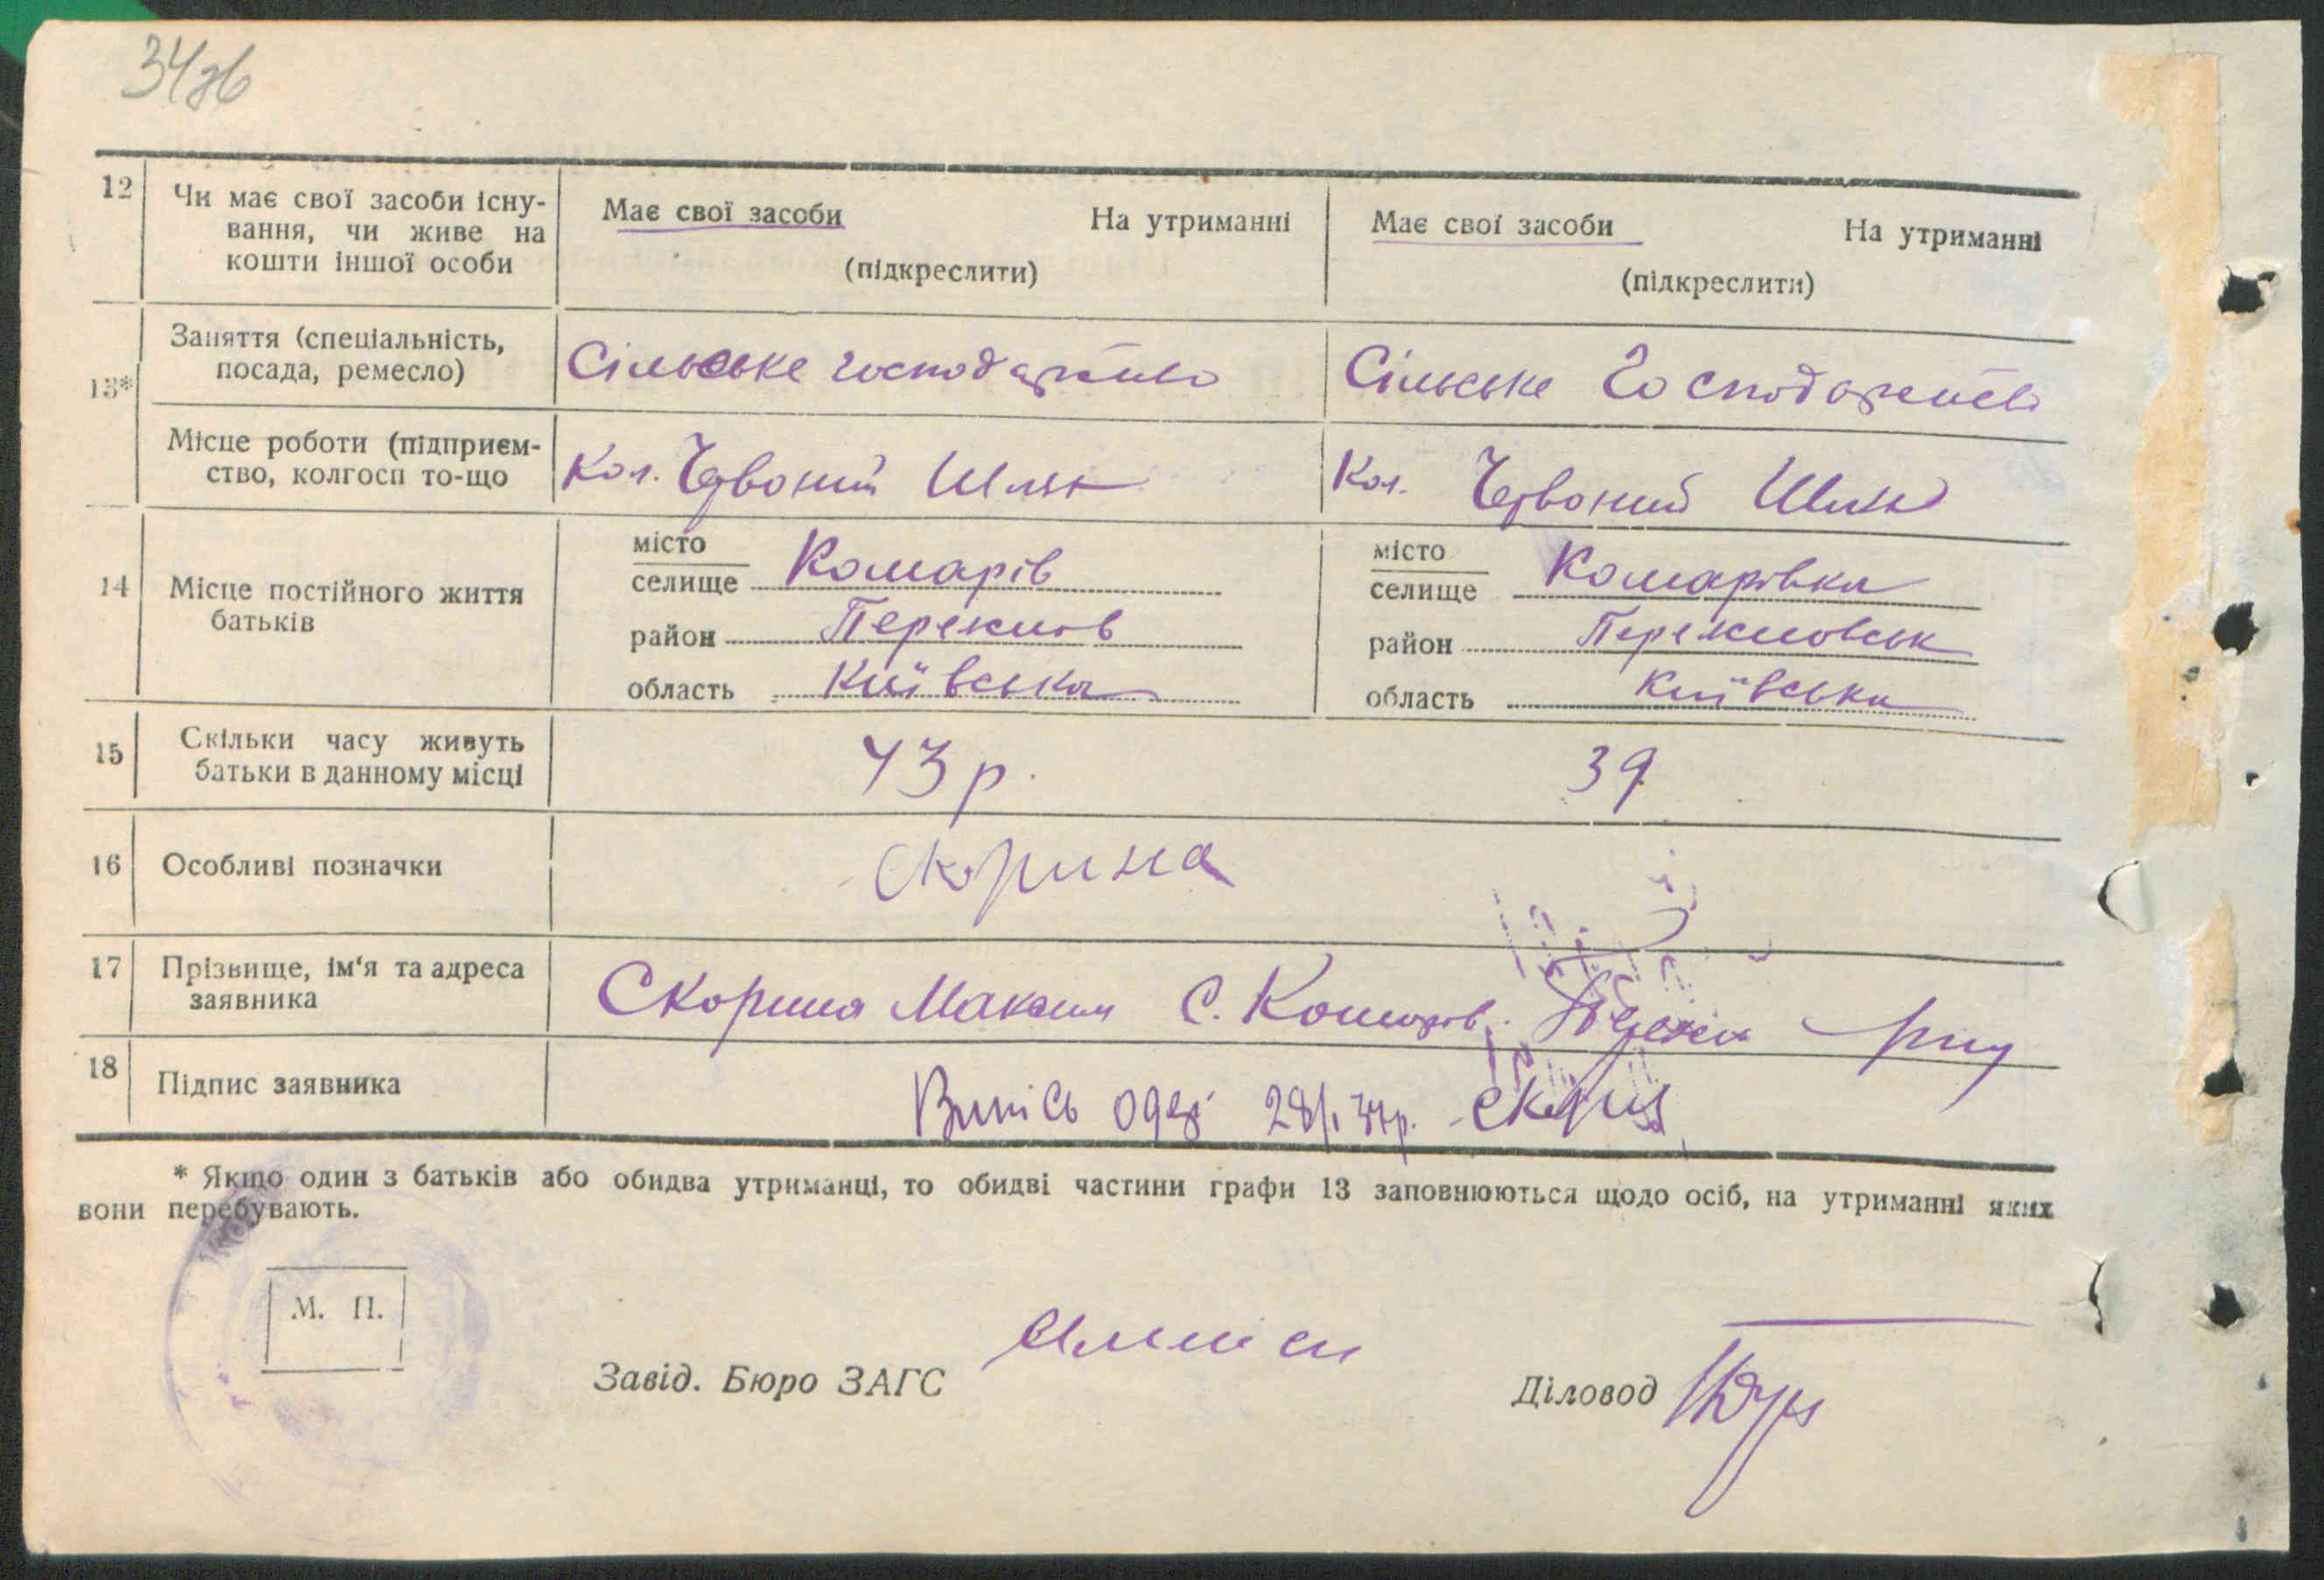 34зв
12 Чи має свої засоби існу-
вання, чи живе на
кошти іншої особи
Має свої засоби На утриманні
(підкреслити)
Має свої засоби На утриманні
(підкреслити)
13*
Заняття (спеціальність,
посада, ремесло)
Сільське господарство
Сільське Господарство
Місце роботи (підприєм-
ство, колгосп то-що
Кол. Червоний Шлях
Кол. Червоний Шлях
14 Місце постійного життя
батьків
місто
селище Комарів
район
область Київська
місто
селище Комарівка
район
область Київська
15 Скільки часу живуть
батьки в данному місці
43 р. 39
16 Особливі позначки
Скорина
17 Прізвище, ім‘я та адреса
заявника
Скорина Максим С. Комарів
18 Підпис заявника
Випісь 28/I 37р.
* Якщо один з батьків або обидва утриманці, то обидві частини графи 13 заповнюються щодо осіб, на утриманні яких
вони перебувають.
М. П.
Завід. Бюро ЗАГС
Діловод